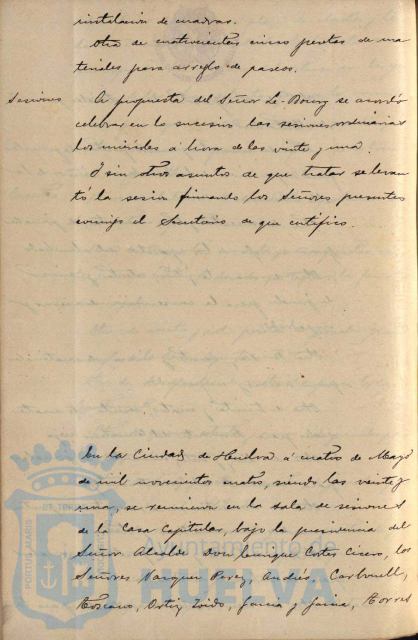 instalacion de cuadras.
Otra de cuatrocientas cinco pesetas de ma-
teriales para arreglo de paseos.
Sesiones
A propuesta del Señor Le-Bourg se acordó
celebrar en lo sucesivo las sesiones ordinarias
los miércoles á hora de las veinte y una.
Y sin otros asuntos de que tratar se levan-
tó la sesion firmando los Señores presentes
conmigo el Secretario de que certifico.
En la Ciudad de Huelva á cuatro de Mayo
de mil novecientos cuatro, siendo las veinte y
una, se reunieron en la sala de sesiones
de la Casa Capitular, bajo la presidencia del
Señor Alcalde Don Enrique Cortes Cicero, los
Señores Vazquez Perez, Andrés, Carbonell,
Toscano, Ortiz, Toido, Garcia y Garcia, Torres
Ayuntamiento de
HUELVA
PORTUS MARIS
ET TERR